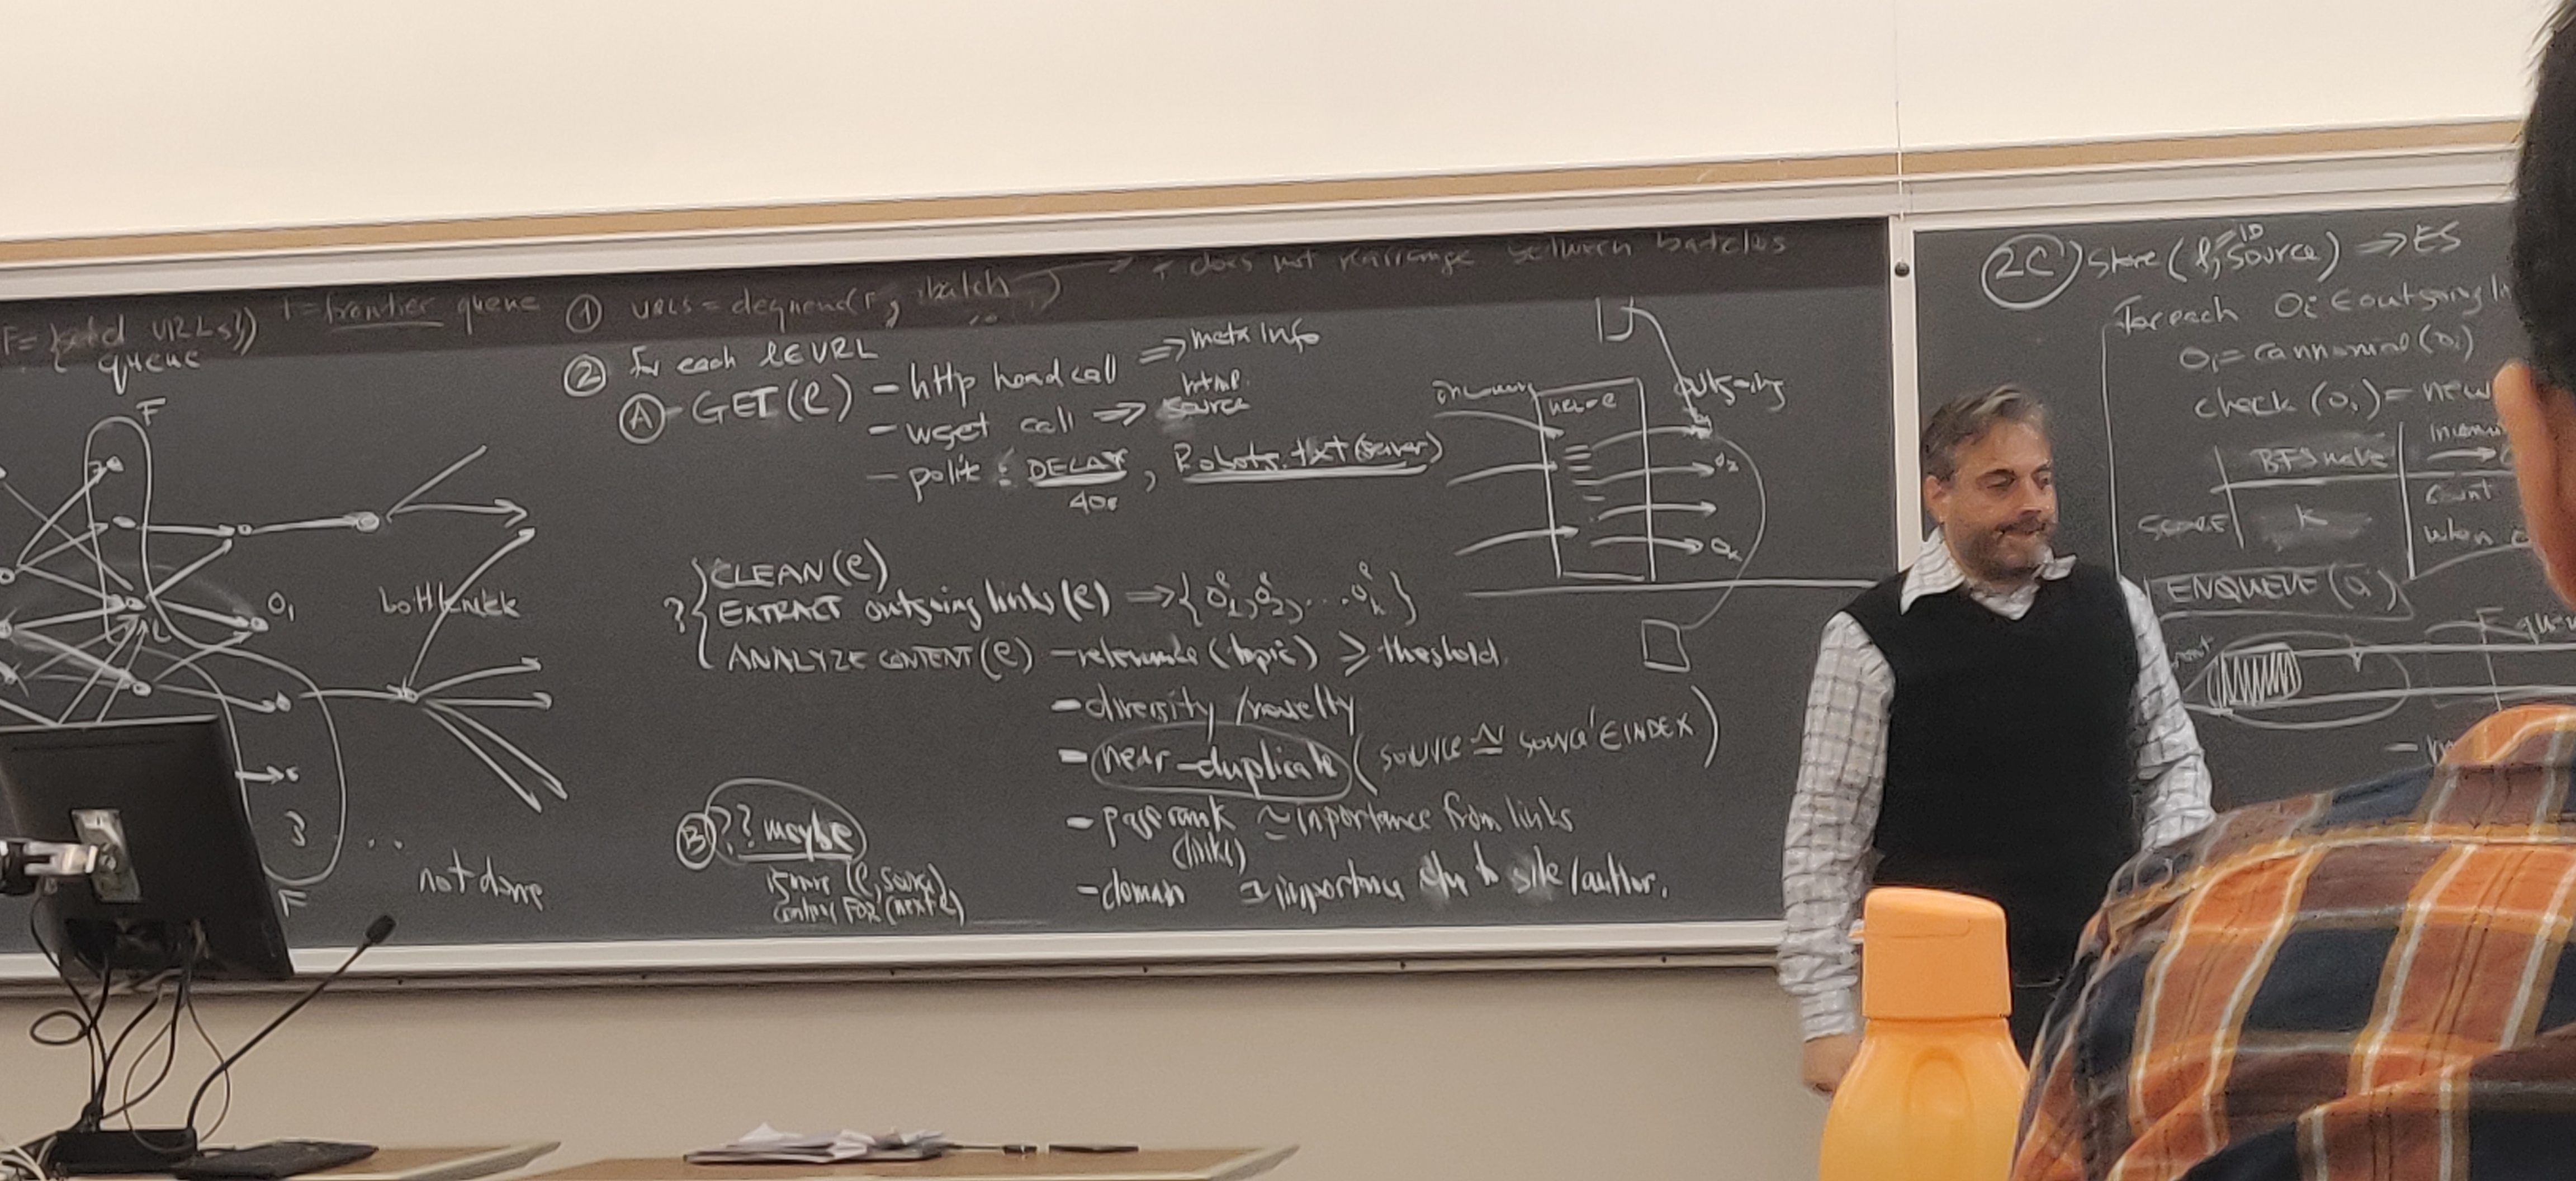 F = {seed URLs}
queue
F = frontier queue
F
O₁
bottleneck
3
F
not done
① URLS = dequeue(F, batch)
→ F does not rearrange between batches
② for each ℓ ∈ URL
Ⓐ - GET(ℓ) - http head call ⇒ meta info
- wget call ⇒ html source
- polite : DELAY, Robots.txt (server)
CLEAN(ℓ)
? { EXTRACT outgoing links(ℓ) ⇒ {O₁, O₂, ... Oₖ}
ANALYZE CONTENT(ℓ) - relevance (topic) ≥ theshold.
- diversity / novelty
- near-duplicate (source ≅ source' ∈ INDEX)
- pagerank ≃ importance from links
(links)
- domain importance due to site/author.
Ⓑ ?? maybe
ignore (ℓ, source)
FOR (next ℓ)
incoming
outgoing
O₂
Oₖ
2C) Store(ℓ, source) ⇒ ES
ID
foreach Oᵢ ∈ outgoing
Oᵢ = cannonical(Oᵢ)
check (Oᵢ) = new
BFS wave
count
K
when
ENQUEUE(Oᵢ)
F
front